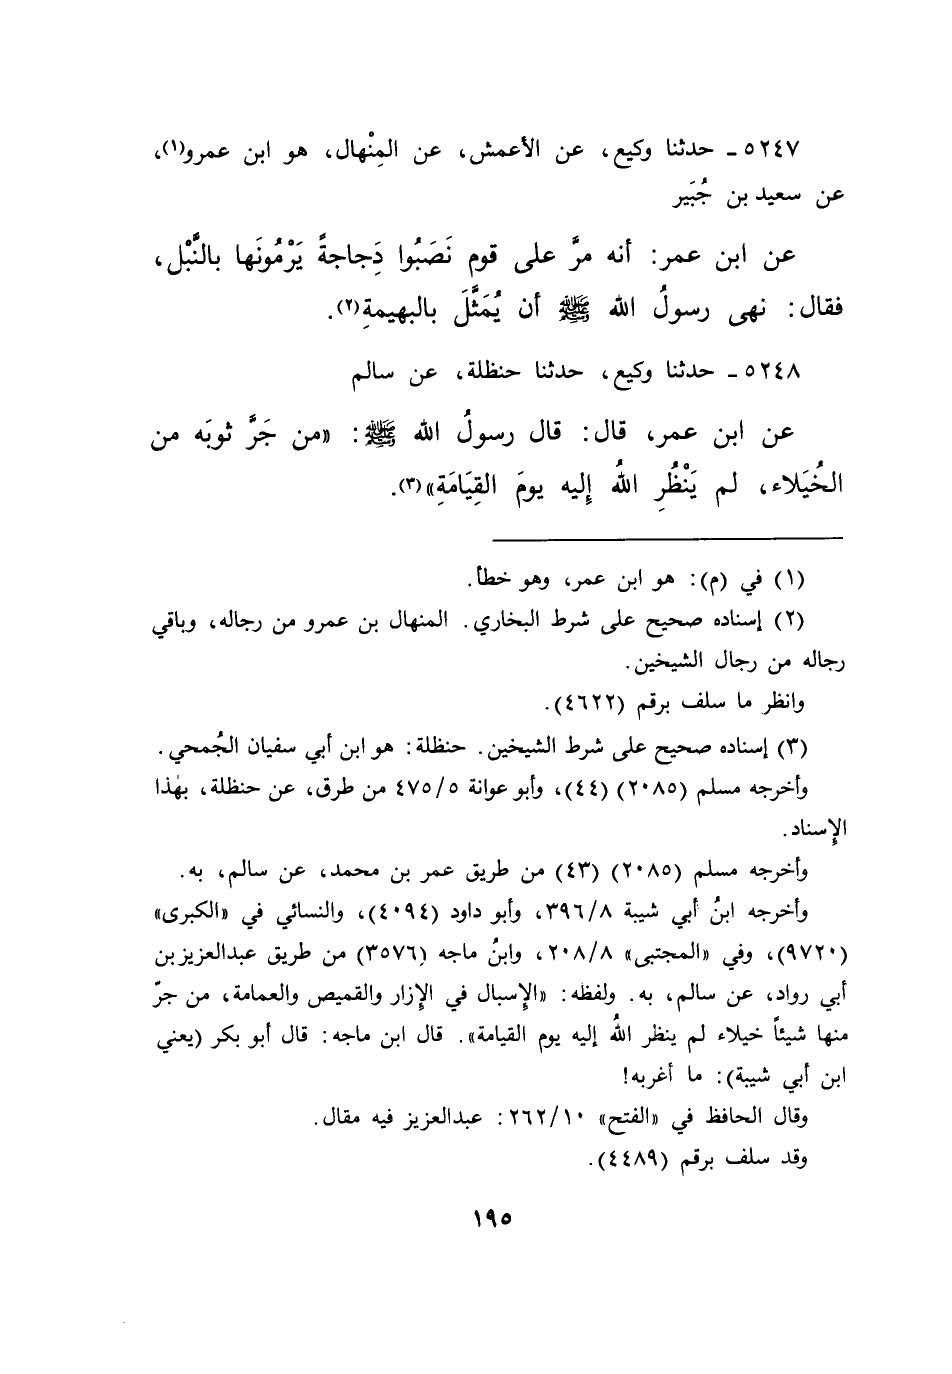 ٥٢٤٧ ـ حدثنا وكيع، عن الأعمش، عن المِنْهال، هو ابن عمرو(١)،
عن سعيد بن جُبَير
عن ابن عمر: أنه مرَّ على قوم نَصَبُوا دَِجاجةً يَرْمُونَها بالنَّبْل،
فقال: نهى رسولُ الله ﷺ أن يُمَثَّلَ بالبهيمةِ(٢).
٥٢٤٨ ـ حدثنا وكيع، حدثنا حنظلة، عن سالم
عن ابن عمر، قال: قال رسولُ الله ﷺ: «من جَرَّ ثوبَه من
الخُيَلاء، لم يَنْظُرِ اللهُ إليه يومَ القِيَامَةِ»(٣).
(١) في (م): هو ابن عمر، وهو خطأ.
(٢) إسناده صحيح على شرط البخاري. المنهال بن عمرو من رجاله، وباقي
رجاله من رجال الشيخين.
وانظر ما سلف برقم (٤٦٢٢).
(٣) إسناده صحيح على شرط الشيخين. حنظلة: هو ابن أبي سفيان الجُمحي.
وأخرجه مسلم (٢٠٨٥) (٤٤)، وأبو عوانة ٤٧٥/٥ من طرق، عن حنظلة، بهٰذا
الإِسناد.
وأخرجه مسلم (٢٠٨٥) (٤٣) من طريق عمر بن محمد، عن سالم، به.
وأخرجه ابنُ أبي شيبة ٣٩٦/٨، وأبو داود (٤٠٩٤)، والنسائي في «الكبرى»
(٩٧٢٠)، وفي «المجتبى» ٢٠٨/٨، وابنُ ماجه (٣٥٧٦) من طريق عبدالعزيز بن
أبي رواد، عن سالم، به. ولفظه: «الإِسبال في الإِزار والقميص والعمامة، من جرّ
منها شيئاً خيلاء لم ينظر اللهُ إليه يوم القيامة». قال ابن ماجه: قال أبو بكر (يعني
ابن أبي شيبة): ما أغربه!
وقال الحافظ في «الفتح» ٢٦٢/١٠: عبدالعزيز فيه مقال.
وقد سلف برقم (٤٤٨٩).
١٩٥